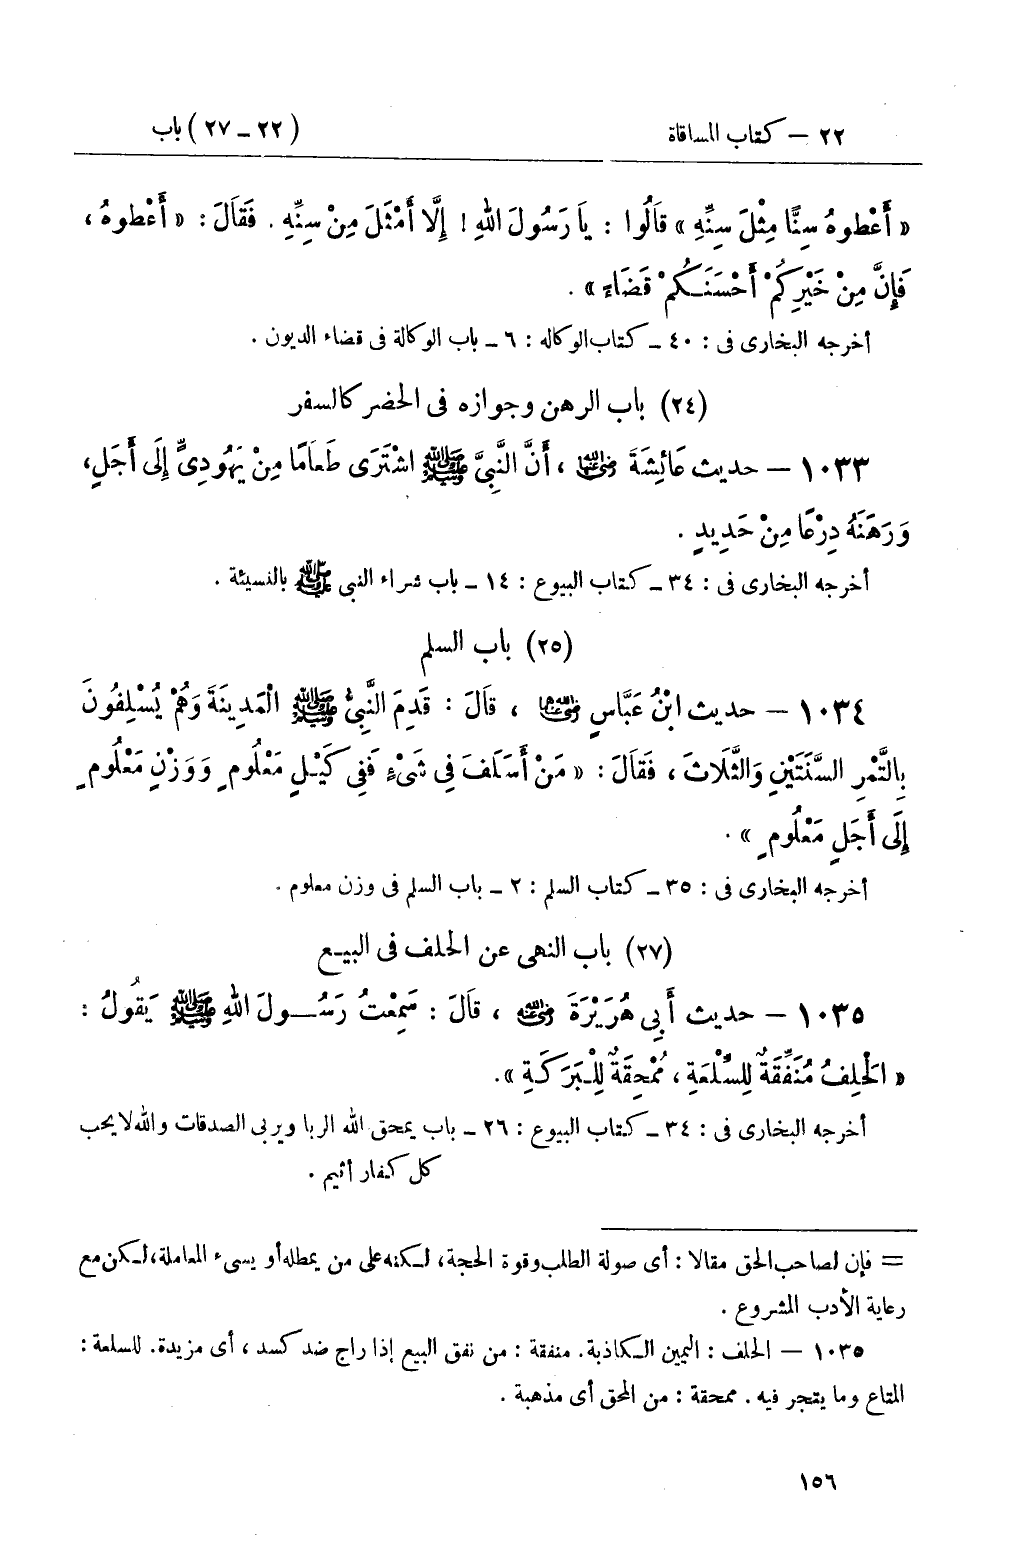 ٢٢ – كتاب المساقاة (٢٢ – ٢٧) باب
« أَعْطوهُ سِنًّا مِثْلَ سِنِّهِ » قَالُوا : يَا رَسُولَ اللهِ ! إِلَّا أَمْثَلَ مِنْ سِنِّهِ . فَقَالَ : « أَعْطوهُ ،
فَإِنَّ مِنْ خَيْرِكُمْ أَحْسَنَكُمْ قَضَاءً » .
أخرجه البخارى فى : ٤٠ – كتاب الوكاله : ٦ – باب الوكالة فى قضاء الديون .
(٢٤) باب الرهن وجوازه فى الحضر كالسفر
١٠٣٣ – حديث عَائِشَةَ رضي الله عنها ، أَنَّ النَّبِيَّ ﷺ اشْتَرَى طَعَامًا مِنْ يَهُودِىٍّ إِلَى أَجَلٍ،
وَرَهَنَهُ دِرْعًا مِنْ حَدِيدٍ .
أخرجه البخارى فى : ٣٤ – كتاب البيوع : ١٤ – باب شراء النبى ﷺ بالنسيئة .
(٢٥) باب السلم
١٠٣٤ – حديث ابْنُ عَبَّاسٍ رضي الله عنهما ، قَالَ : قَدِمَ النَّبِىُّ ﷺ الْمَدِينَةَ وَهُمْ يُسْلِفُونَ
بِالتَّمْرِ السَّنَتَيْنِ وَالثَّلَاثَ ، فَقَالَ : « مَنْ أَسْلَفَ فِى شَىْءٍ فَفِى كَيْلٍ مَعْلُومٍ وَوَزْنٍ مَعْلُومٍ
إِلَى أَجَلٍ مَعْلُومٍ » .
أخرجه البخارى فى : ٣٥ – كتاب السلم : ٢ – باب السلم فى وزن معلوم .
(٢٧) باب النهى عن الحلف فى البيع
١٠٣٥ – حديث أَبِى هُرَيْرَةَ رضي الله عنه ، قَالَ : سَمِعْتُ رَسُولَ اللهِ ﷺ يَقُولُ :
« الْحَلِفُ مُنَفِّقَةٌ لِلسِّلْعَةِ ، مُمْحِقَةٌ لِلْبَرَكَةِ ».
أخرجه البخارى فى : ٣٤ – كتاب البيوع : ٢٦ – باب يمحق الله الربا ويربى الصدقات والله لا يحب
كل كفار أثيم .
= فإن لصاحب الحق مقالا : أى صولة الطلب وقوة الحجة، لكنه على من يمطله أو يسىء المعاملة، لكن مع
رعاية الأدب المشروع .
١٠٣٥ – الحلف : اليمين الكاذبة. منفقة : من نفق البيع إذا راج ضد كسد ، أى مزيدة. للسلعة :
المتاع وما يتجر فيه . ممحقة : من المحق أى مذهبة .
١٥٦